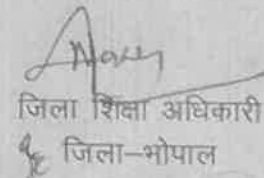 जिला शिक्षा अधिकारी
जिला-भोपाल